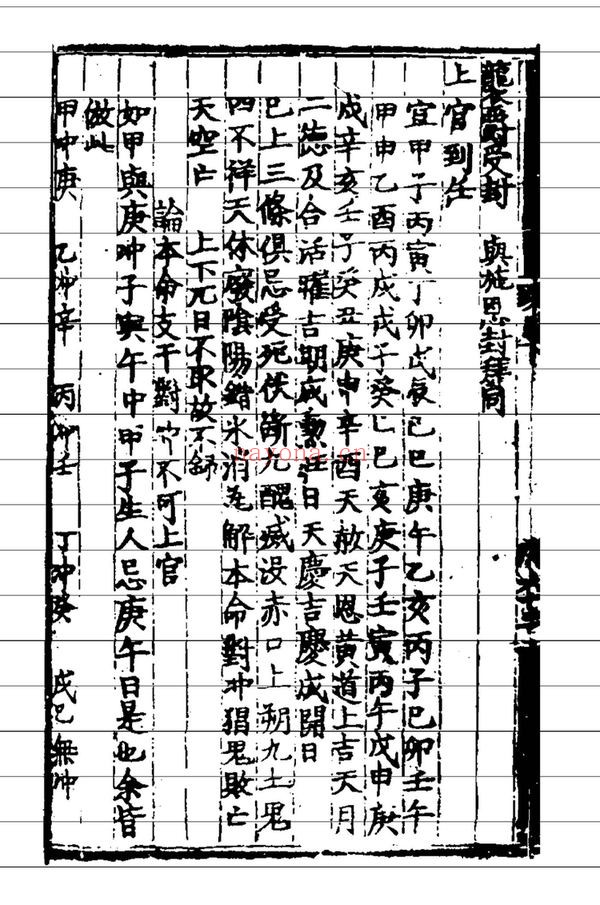 襲爵受封 與施恩封拜同
上官到任
宜甲子丙寅丁卯戊辰己巳庚午乙亥丙子己卯壬午
甲申乙酉丙戌戊子癸巳己亥庚子壬寅丙午戊申庚
戌辛亥壬子癸丑庚申辛酉天赦天恩黃道上吉天月
二德及合活曜吉期成勳旺日天慶吉慶成開日
已上三條俱忌受死伏斷九醜滅没赤口上朔九土鬼
四不祥天休廢陰陽錯氷消瓦解本命對冲猖鬼敗亡
天空亡 上下兀日不取故不錄
論本命支干對冲不可上官
如甲與庚冲子與午冲甲子生人忌庚午日是也余皆
倣此
甲冲庚 乙冲辛 丙冲壬 丁冲癸 戊己無冲
nayona.cn